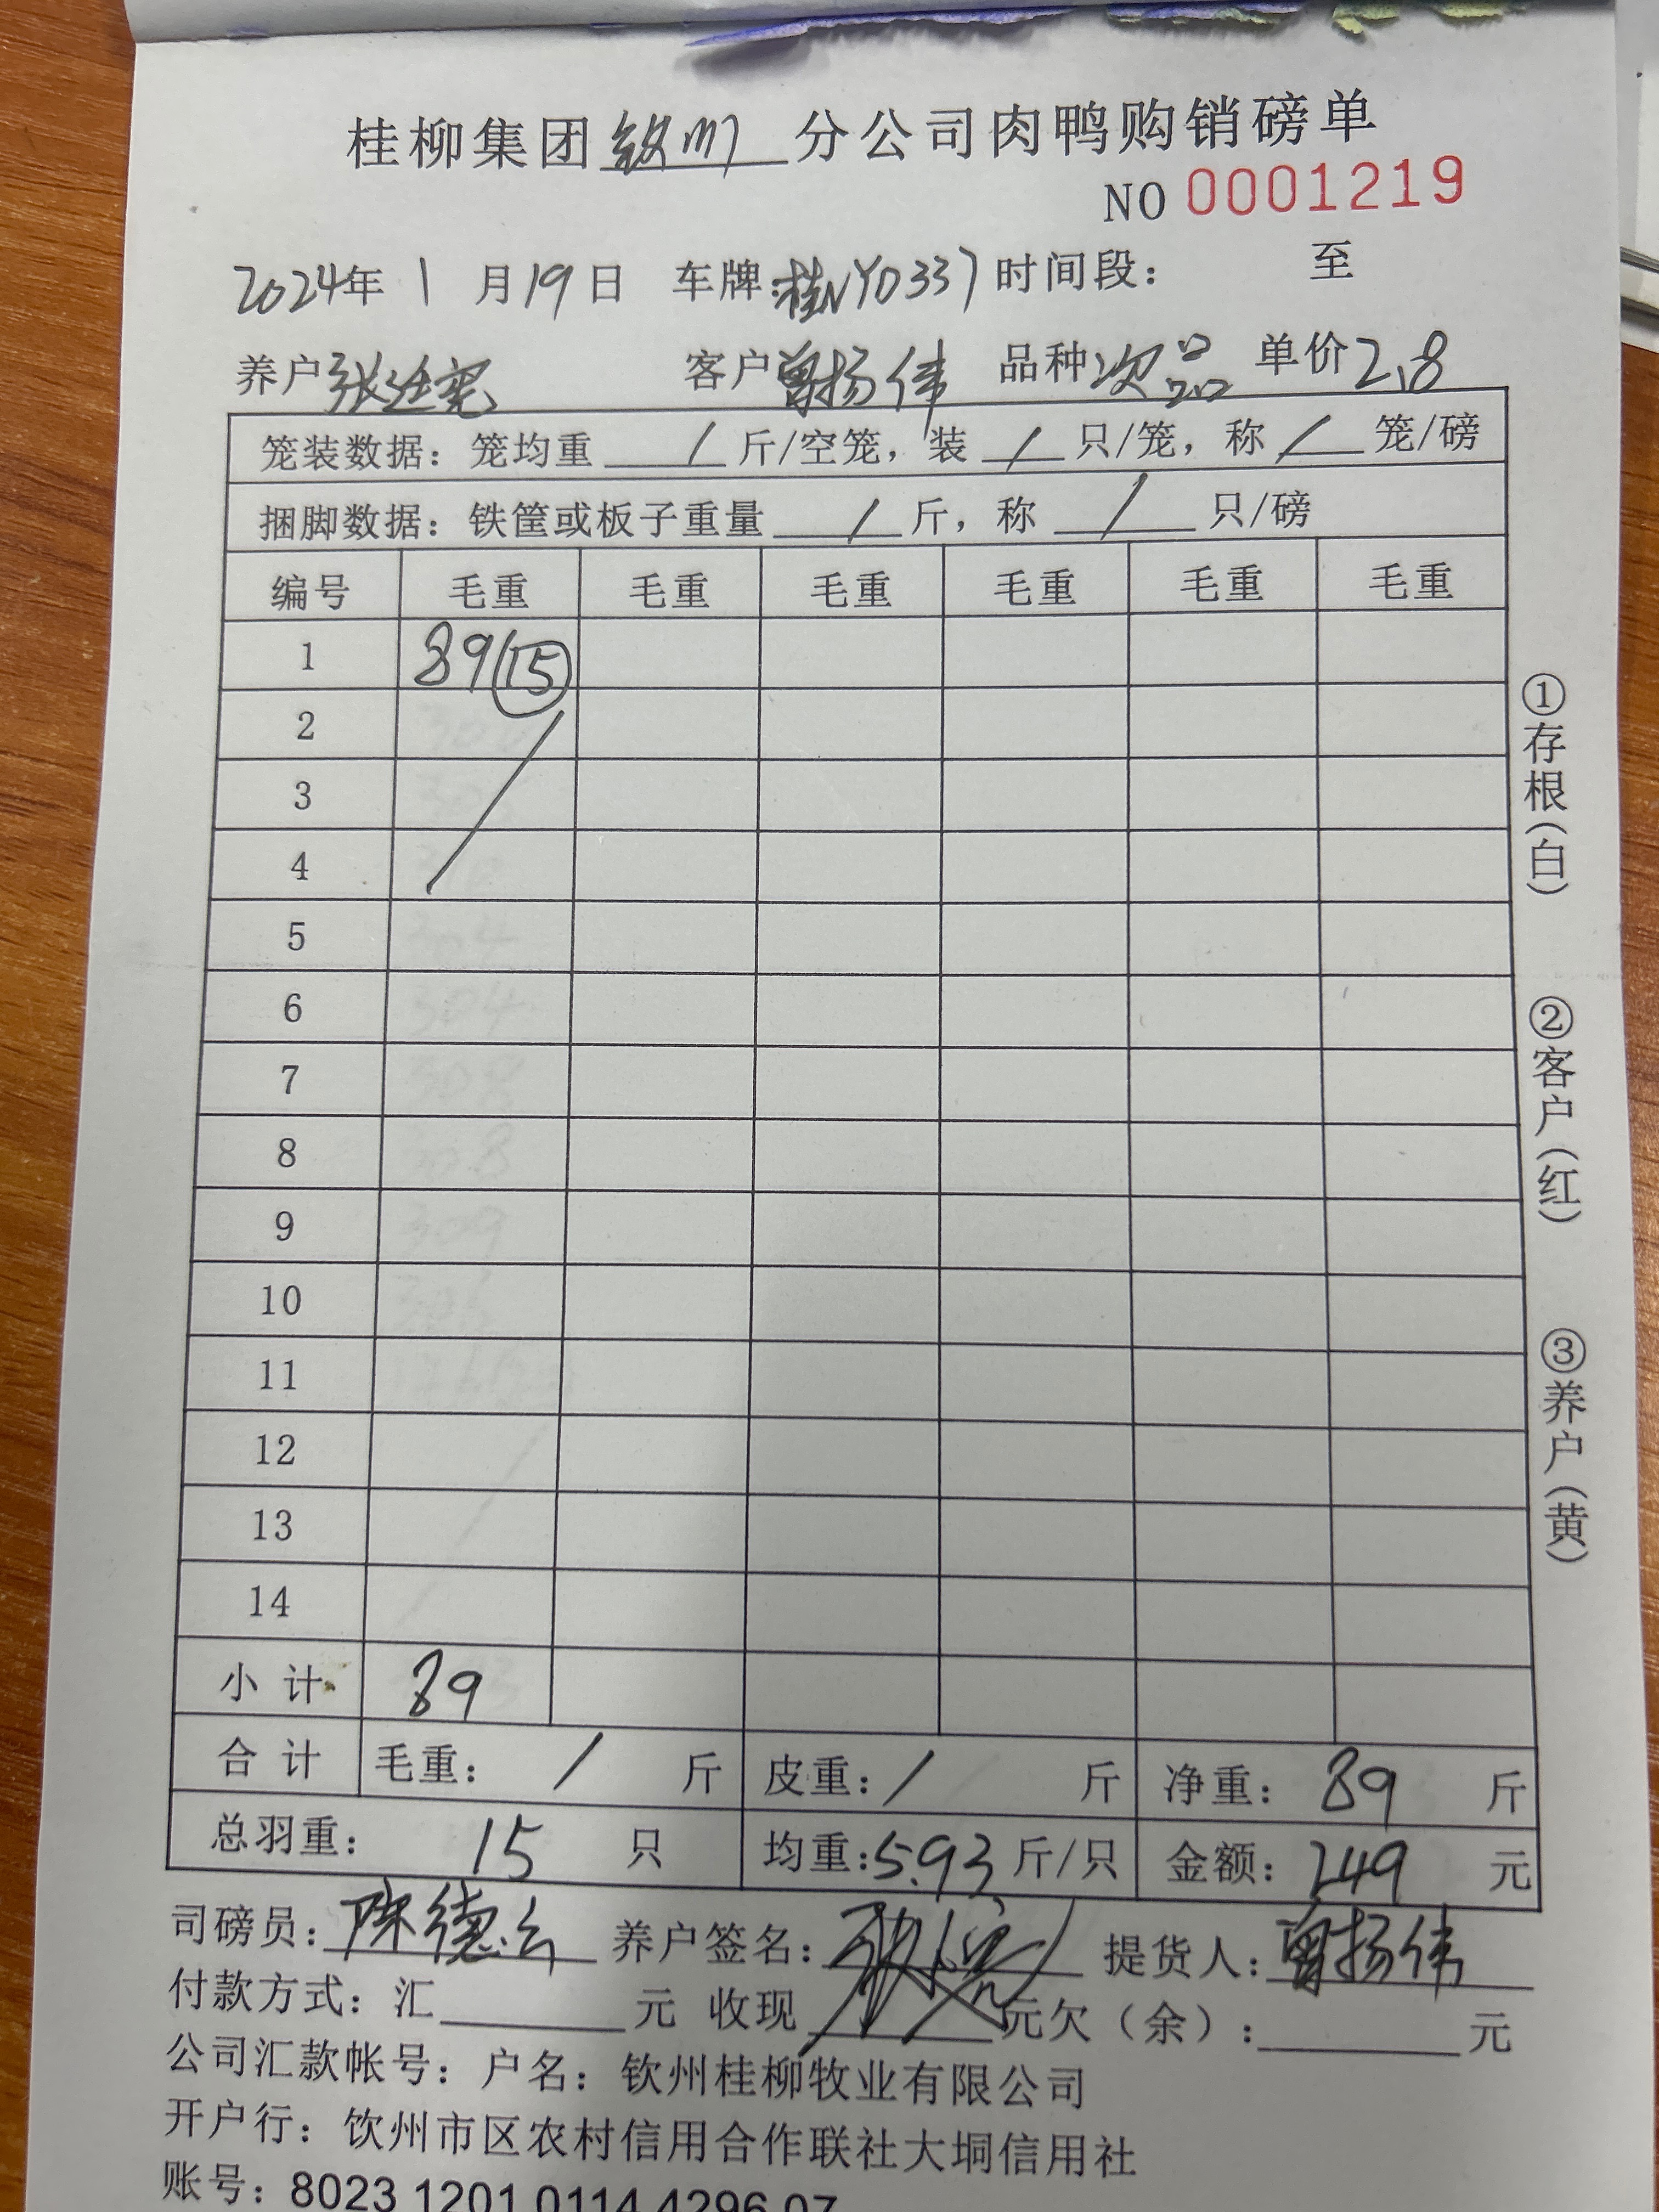 桂柳集团钦州分公司肉鸭购销磅单
NO 0001219
2024年 1 月 19 日 车牌:桂NY0337 时间段: 至
养户 张 客户 曾扬伟 品种 次品 单价 2.8
笼装数据: 笼均重 / 斤/空笼, 装 / 只/笼, 称 / 笼/磅
捆脚数据: 铁筐或板子重量 / 斤, 称 / 只/磅
编号 毛重 毛重 毛重 毛重 毛重 毛重
1 89 ⑮
2
3
4
5
6
7
8
9
10
11
12
13
14
小计 89
合计 毛重: / 斤 皮重: / 斤 净重: 89 斤
总羽重: 15 只 均重: 5.93 斤/只 金额: 249 元
司磅员: 陈德 养户签名: 提货人: 曾扬伟
付款方式: 汇 元 收现 元欠(余): 元
公司汇款帐号: 户名: 钦州桂柳牧业有限公司
开户行: 钦州市区农村信用合作联社大垌信用社
账号: 8023 1201 0114 4296 07
①存根(白)
②客户(红)
③养户(黄)